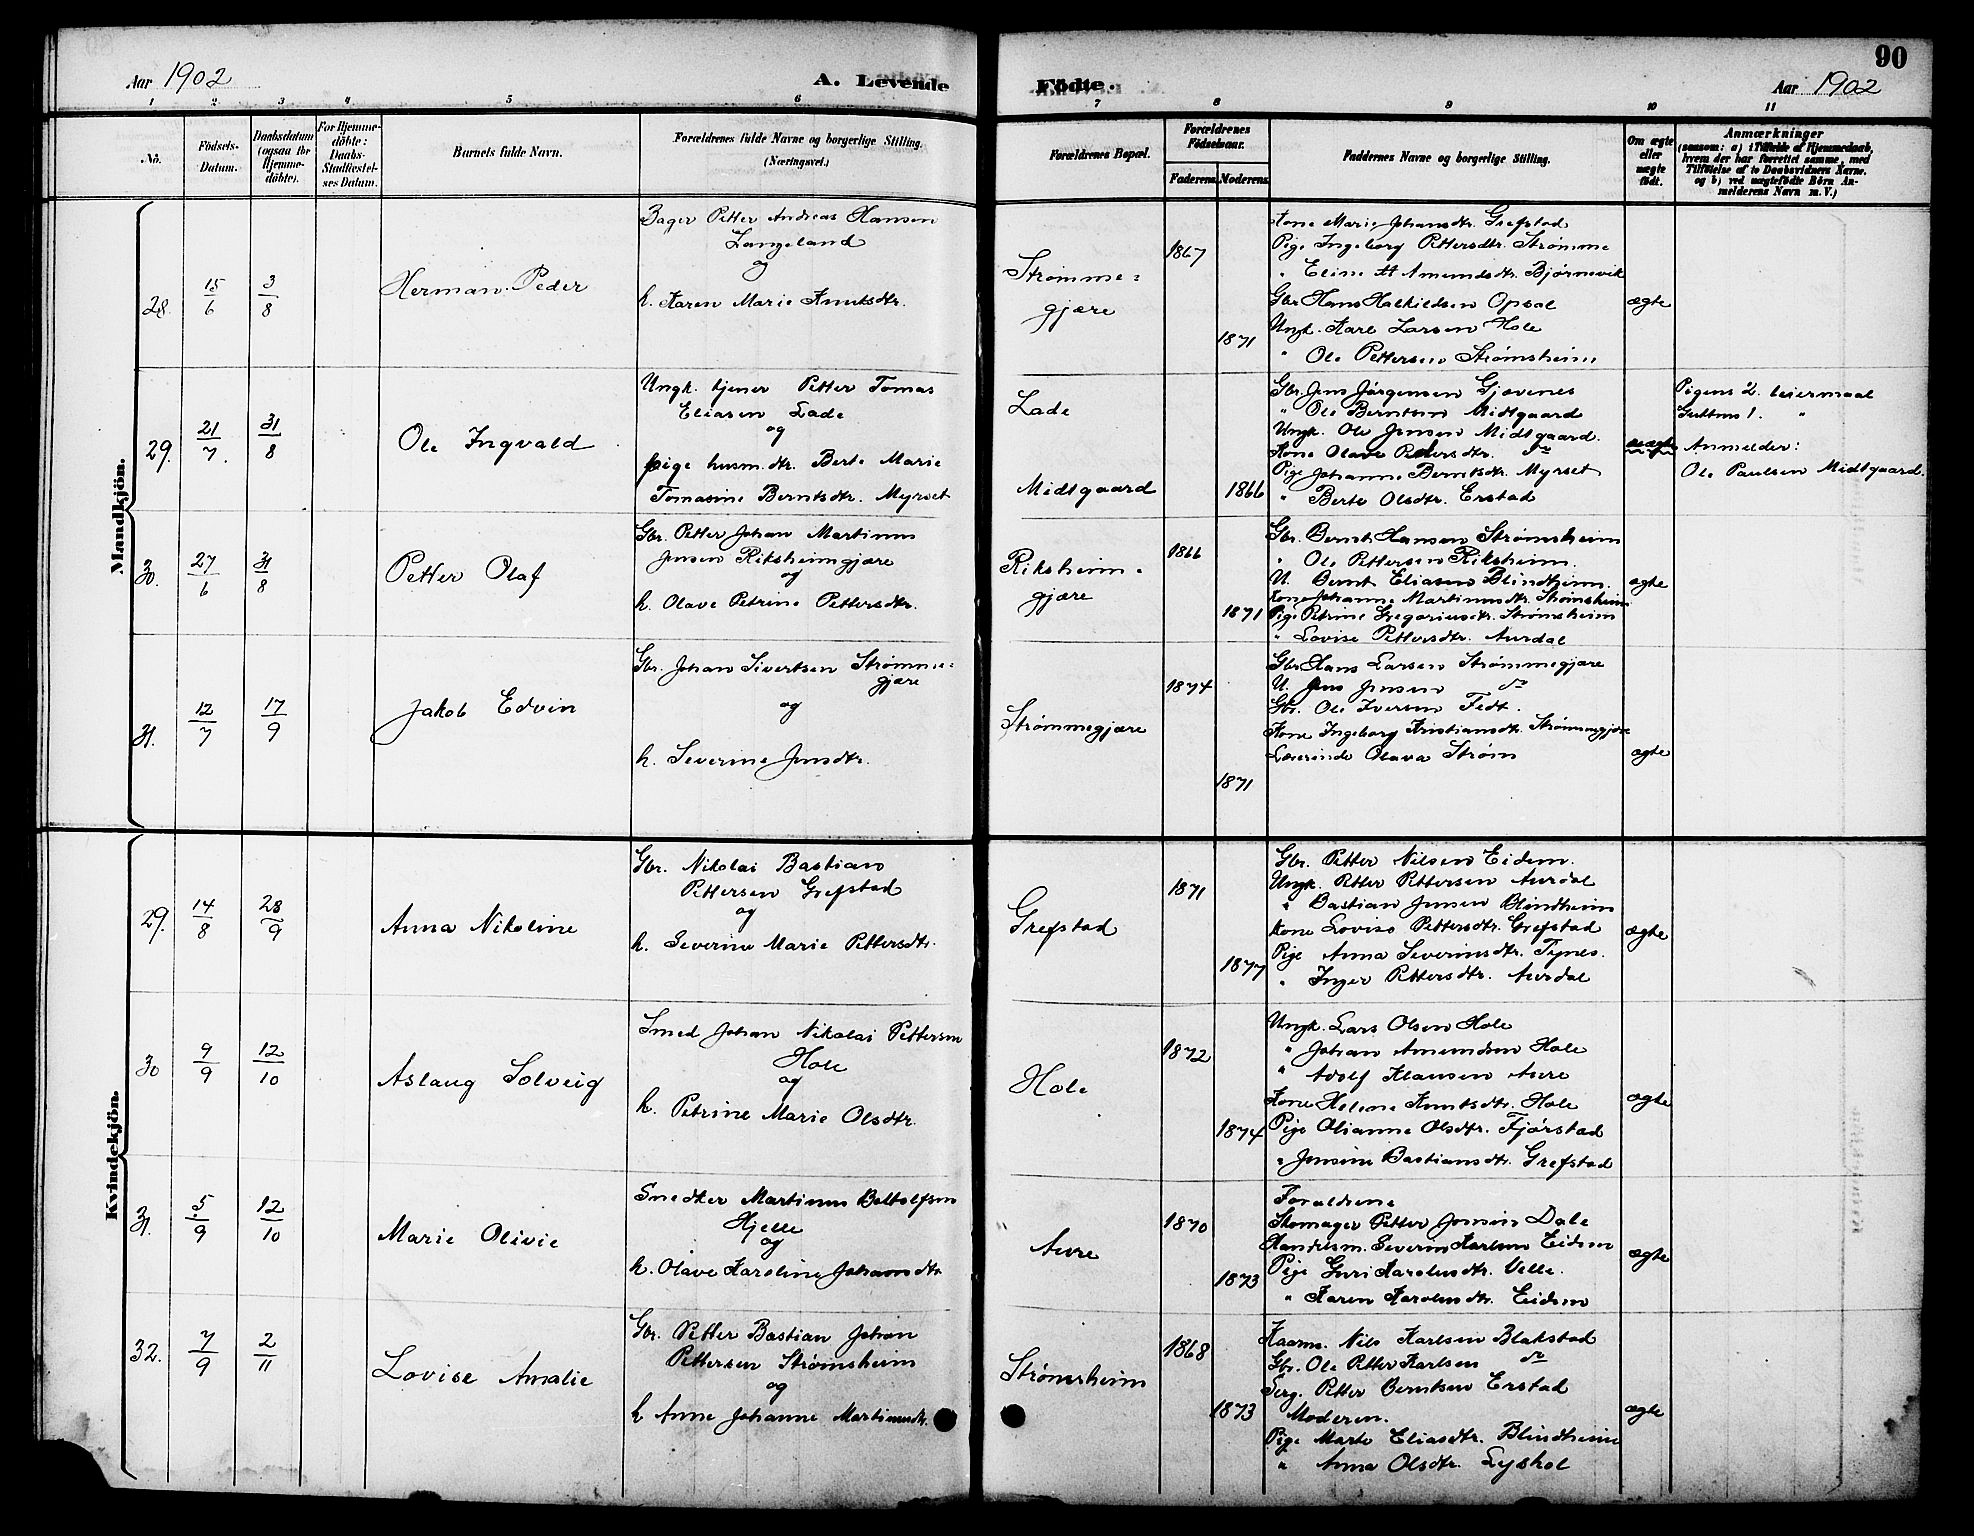 90
Aar 1902
A. Levende
Födte.
Aar 1902
1 2 3 4 5 6 7 8 9 10 11
No.
Födsels-Datum.
Daabsdatum (ogsaa for Hjemme-döbte).
For Hjemme-döbte: Daabs-Stadfæstel-ses Datum.
Barnets fulde Navn.
Forældrenes fulde Navne og borgerlige Stilling.
(Næringsvei.)
Forældrenes Bopæl.
Forældrenes Födselsaar.
Faderens. Moderens.
Faddernes Navne og borgerlige Stilling.
Om ægte eller uægte födt.
Anmærkninger
(saasom: a) i Tilfælde af Hjemmedaab, hvem der har forrettet samme, med Tilföielse af to Daabsvidners Navne, og b) ved uægtefödte Börn An-melderens Navn m. V.)
Mandkjön.
28. 15/6 3/8
Herman Peder
Bager Petter Andreas Hansen
Langeland
og
h. Karen Marie Knutsdtr.
Strømme-
gjære
1867
1871
Kone Marie Johansdtr. Grefstad
Pige Ingeborg Pettersdtr. Strømme
" Eline Amundsdtr. Bjørnevik
Gbr. Hans Halkildsen Opsal
Ungk. Karl Larsen Hole
" Ole Pettersen Strømsheim
ægte
29. 21/7 31/8
Ole Ingvald
Ungk. tjener Petter Tomas
Eliasen Lade
og
pige husm.dtr. Berte Marie
Tomasine Berntsdtr. Myrset
Lade
Midtgaard
1866
Gbr. Jens Jørgensen Gjævenes
" Ole Berntsen Midtgaard
Ungk. Ole Jensen Midtgaard.
Kone Olave Pedersdtr. do
Pige Johanne Berntsdtr. Myrset
" Berte Olsdtr. Erstad
uægte
Pigens 2. leiermaal
Guttens 1. "
Anmelder:
Ole Paulsen Midtgaard.
30. 27/6 31/8
Petter Olaf
Gbr. Petter Johan Martinus
Jensen Riksheimgjære
og
h. Olave Petrine Pettersdtr.
Riksheim-
gjære
1866
1871
Gbr. Bernt Hansen Strømsheim
" Ole Pettersen Riksheim.
U. Bernt Eliasen Blindheim.
Kone Johanne Martinusdtr. Strømsheim
Pige Petrine Gregoriusdtr. Strømsheim
" Lovise Pettersdtr. Aurdal
ægte
31. 12/7 17/9
Jakob Edvin
Gbr. Johan Sivertsen Strømme-
gjære
og
h. Severine Jensdtr.
Strømmegjære
1874
1871
Gbr. Hans Larsen Strømmegjære
U. Jens Jensen do
Gbr. Ole Iversen Fedt.
Kone Ingeborg Kristiansdtr. Strømmegjære
Lærerinde Olava Strøm
ægte
Kvindekjön.
29. 14/8 28/9
Anna Nikoline
Gbr. Nikolai Bastian
Pettersen Grefstad
og
h. Severine Marie Pettersdtr.
Grefstad
1871
1877
Gbr. Petter Nilsen Eidem.
Ungk. Petter Pettersen Aurdal
" Bastian Jensen Blindheim
Kone Lovise Pettersdtr. Grefstad
Pige Anna Severinsdtr. Tynes.
" Inger Pettersdtr. Aurdal
ægte
30 9/9 12/10
Aslaug Solveig
Smed Johan Nikolai Pettersen
Hole
og
h. Petrine Marie Olsdtr.
Hole
1872
1874
Ungk. Lars Olsen Hole
" Johan Amundsen Hole
" Adolf Klausen Aure
Kone Helene Knutsdtr. Hole
Pige Olianne Olsdtr. Fjørstad
" Jensine Bastiansdtr. Grefstad
ægte
31. 5/9 12/10
Marie Olivie
Snedker Martinus Boltolfsen
Hjelle
og
h. Olave Karoline Johansdtr.
Aure
1870
1873
Forældrene
Skomager Petter Jensen Dale
Handelsm. Severin Karlsen Eidem
Pige Guri Karolusdtr. Velle.
" Karen Karolusdtr. Eidem
ægte
32. 7/9 2/11
Lovise Amalie
Gbr. Petter Bastian Johan
Pettersen Strømsheim
og
h Anne Johanne Martinusdtr.
Strømsheim
1868
1873
Kaarm. Nils Karlsen Blakstad
Gbr. Ole Petter Karlsen do
Serg. Petter Berntsen Erstad
Moderen.
Pige Marte Eliasdtr. Blindheim
" Anna Olsdtr. Lyshol
ægte